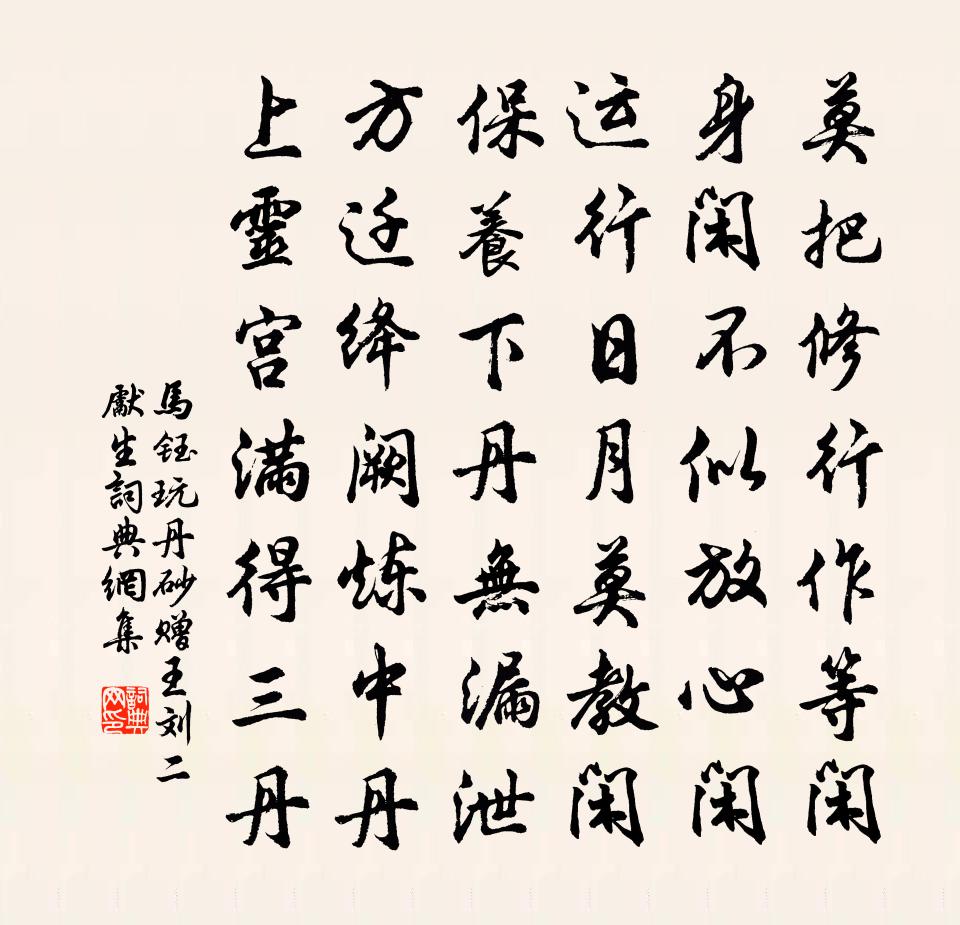 莫把修行作等闲
身闲不似放心闲
运行日月莫教闲
保養下丹無漏泄
方迁绛阙炼中丹
上靈宫满得三丹
馬钰玩丹砂赠王刘二
獻生詞典網集
詞典网印